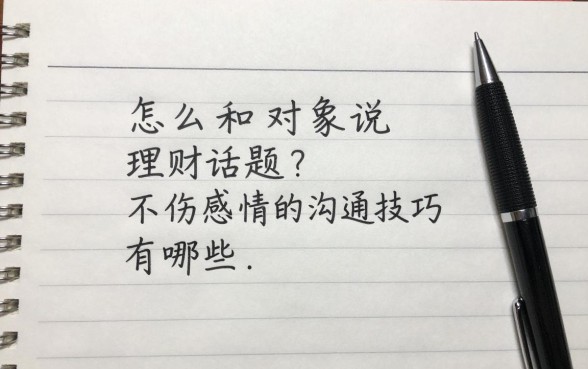 怎么和对象说
理财话题？
不伤感情的沟通技巧
有哪些.